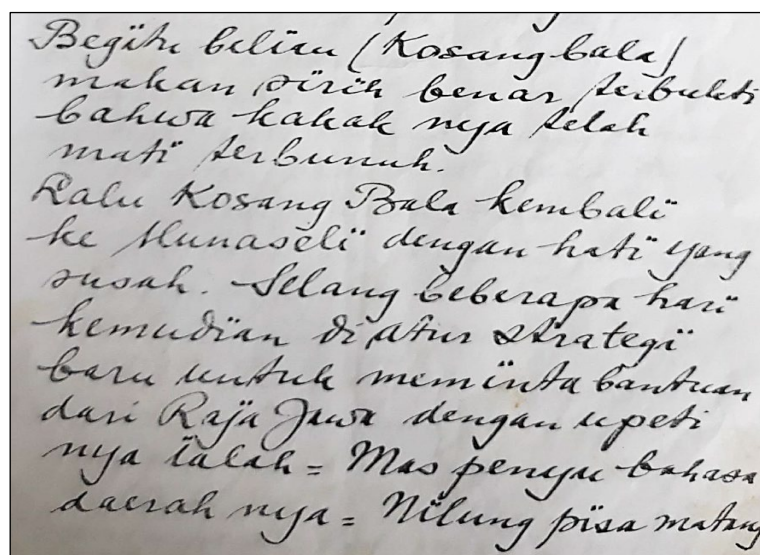 Begitu beliau (Kosangbala)
makan sirih benar terbukti
bahwa kakak nya telah
mati terbunuh.
Lalu Kosang Bala kembali
ke Munaseli dengan hati yang
susah. Selang beberapa hari
kemudian di atur strategi
baru untuk meminta bantuan
dari Raja Jawa dengan upeti
nya ialah = Mas penyu bahasa
daerah nya = Nilung pisa matang